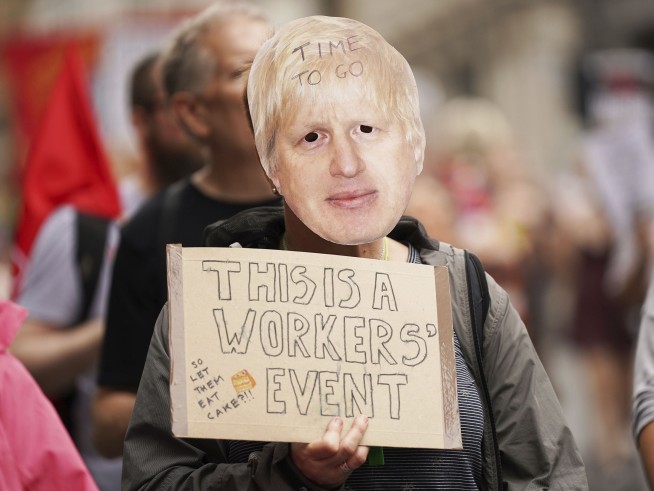 TIME
TO GO
THIS IS A
WORKERS'
EVENT
SO
LET
THEM
EAT
CAKE?!!